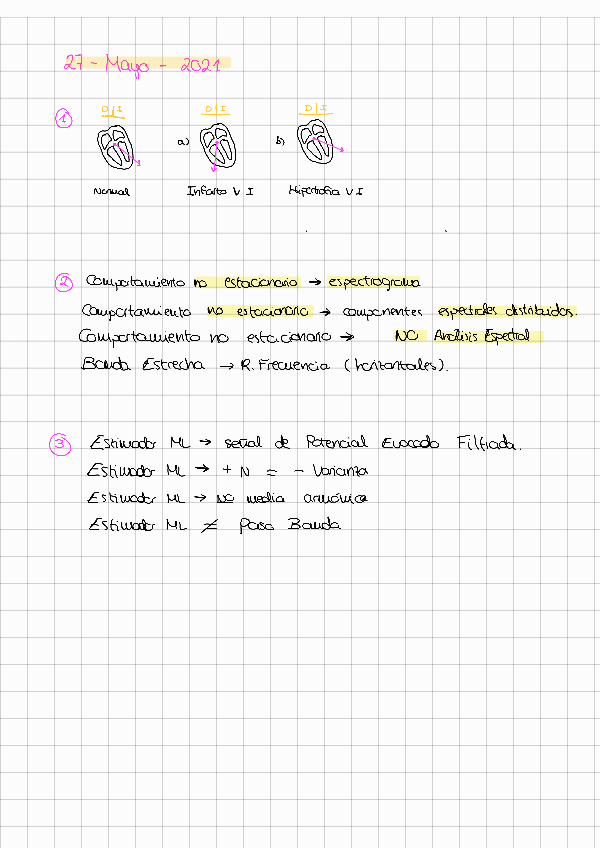 27 - Mayo - 2021
1 D/I D/I D/I
a) b)
Normal Infarto V I Hipertrofia V I
2 Comportamiento no estacionario → espectrograma
Comportamiento no estacionario → componentes espectrales distribuidos.
Comportamiento no estacionario → NO Análisis Espectral
Banda Estrecha → R. Frecuencia (horizontales).
3 Estimador ML → señal de Potencial Evocado Filtrada.
Estimador ML → + N = - Varianza
Estimador ML → NO media armónica
Estimador ML ≠ Paso Banda